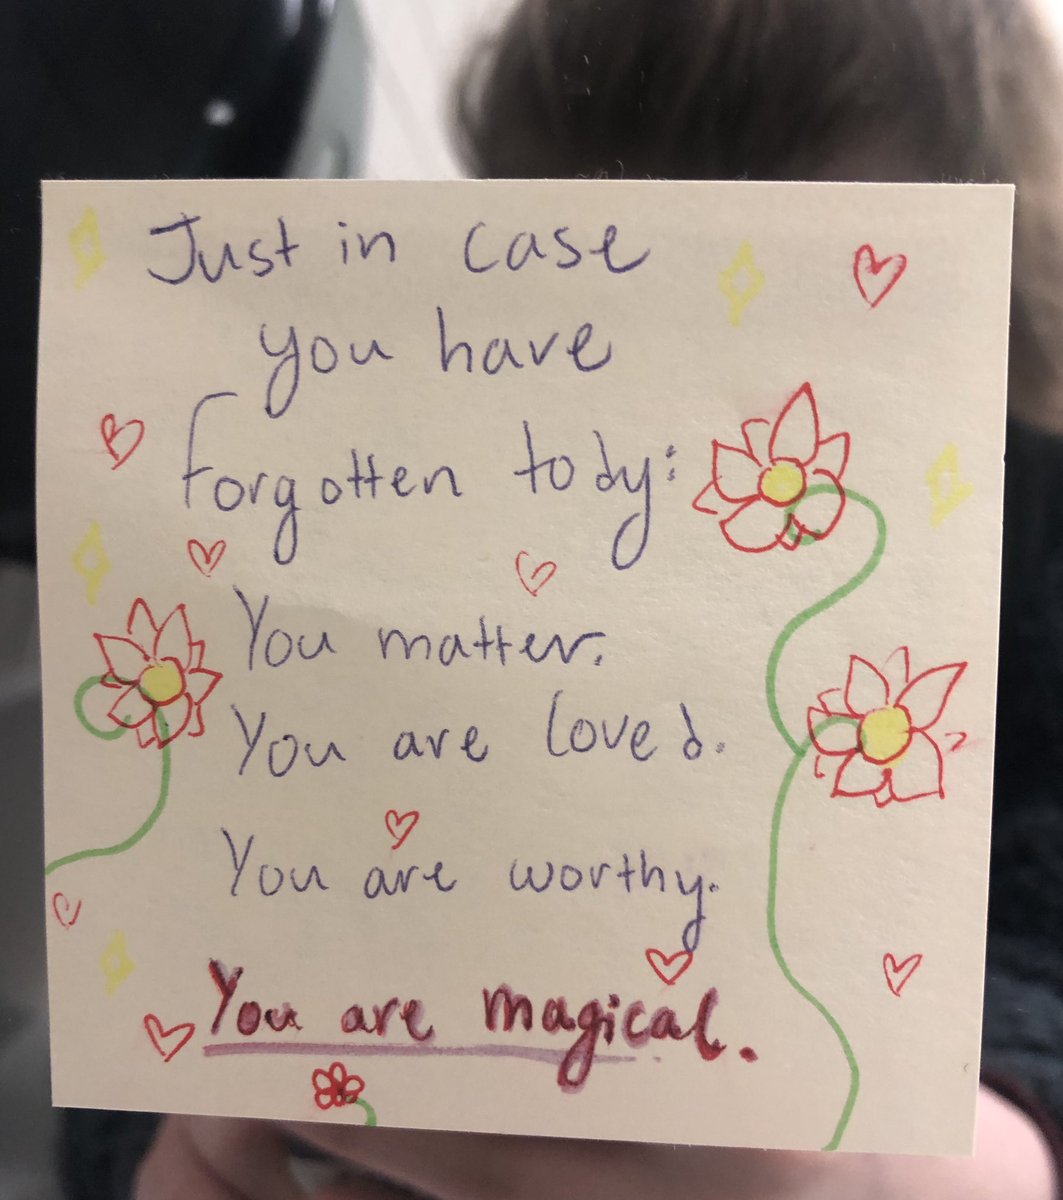 Just in case
you have
forgotten tody:
You matter.
You are loved.
You are worthy.
You are magical.